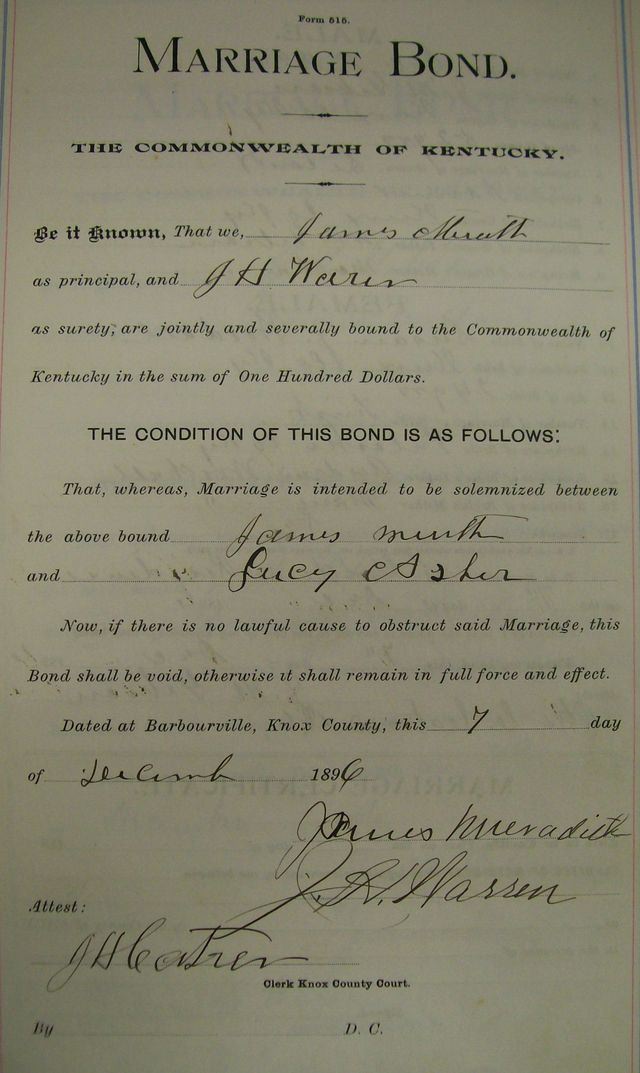 Form 515.
MARRIAGE BOND.
THE COMMONWEALTH OF KENTUCKY.
Be it Known, That we, James
as principal, and J H Waren
as surety, are jointly and severally bound to the Commonwealth of
Kentucky in the sum of One Hundred Dollars.
THE CONDITION OF THIS BOND IS AS FOLLOWS:
That, whereas, Marriage is intended to be solemnized between
the above bound James
and Lucy Asher
Now, if there is no lawful cause to obstruct said Marriage, this
Bond shall be void, otherwise it shall remain in full force and effect.
Dated at Barbourville, Knox County, this 7 day
of Decemb 1896
James Mueradith
J. H. Warren
Attest:
J H
Clerk Knox County Court.
By D. C.